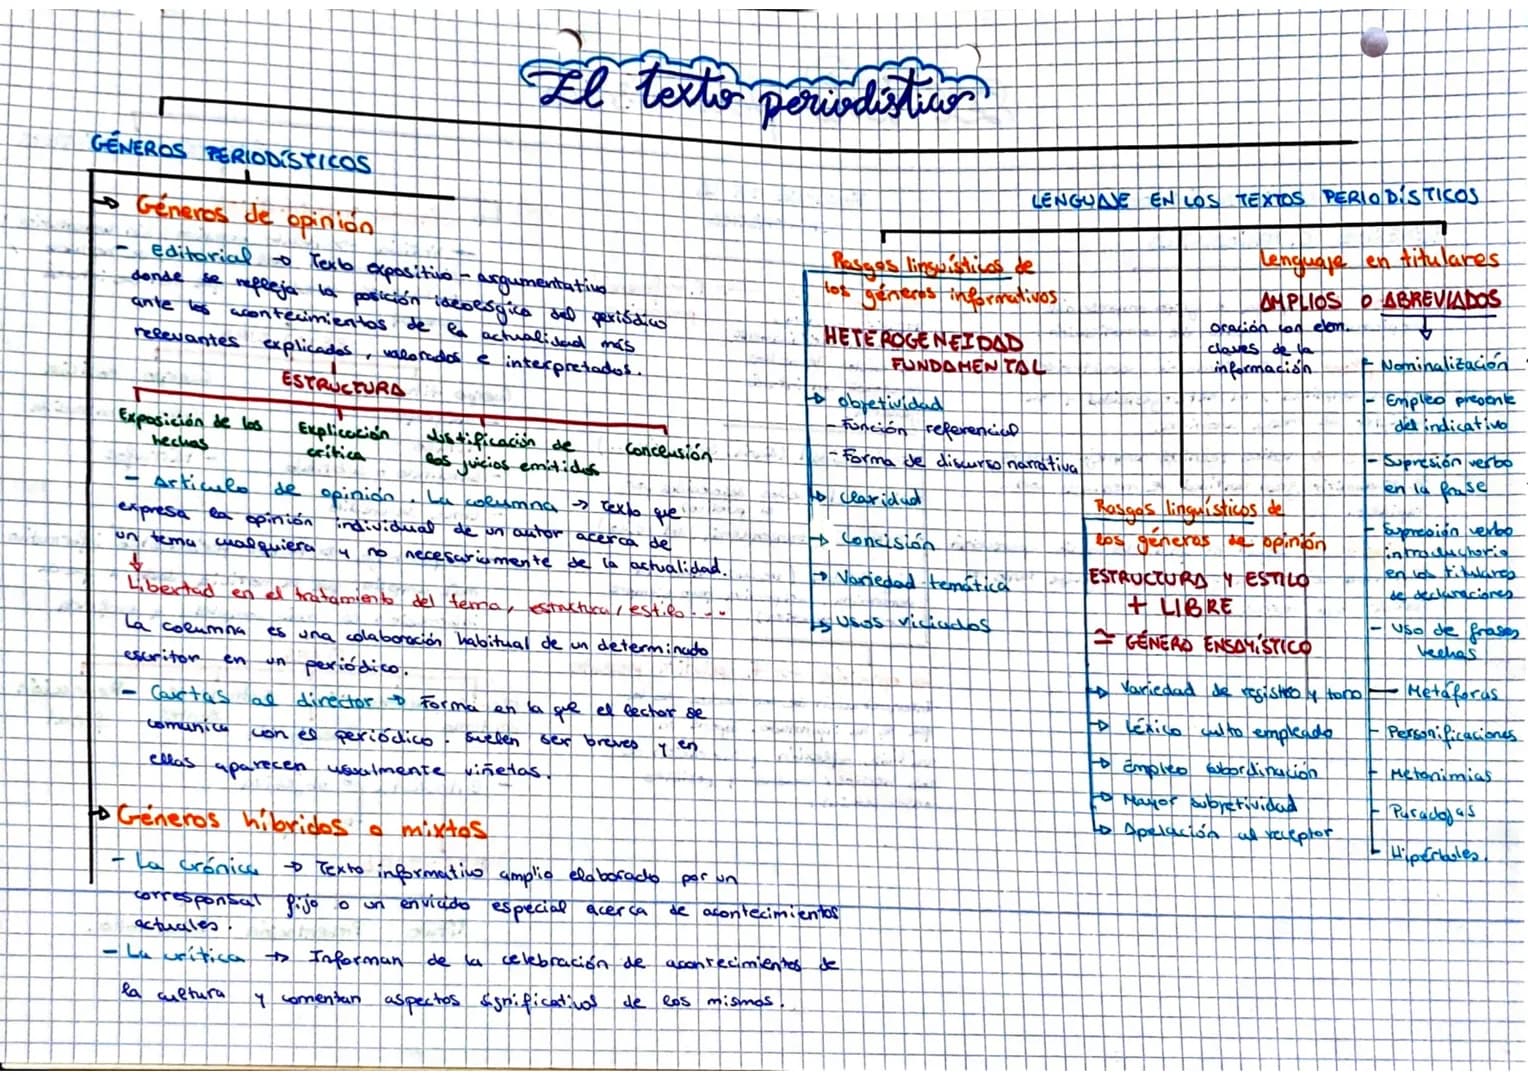 El texto periodístico
GÉNEROS PERIODÍSTICOS
→ Géneros de opinión
- Editorial → Texto expositivo - argumentativo
donde se refleja la posición ideológica del periódico
ante los acontecimientos de la actualidad más
relevantes explicados, valorados e interpretados.
ESTRUCTURA
Exposición de los
hechos
Explicación
crítica
Justificación de
los juicios emitidos
Conclusión
- Artículo de opinión. La columna → Texto que
expresa la opinión individual de un autor acerca de
un tema cualquiera y no necesariamente de la actualidad.
↓
Libertad en el tratamiento del tema, estructura, estilo...
La columna es una colaboración habitual de un determinado
escritor en un periódico.
- Cartas al director → Forma en la que el lector se
comunica con el periódico. Suelen ser breves y en
ellas aparecen usualmente viñetas.
→ Géneros híbridos o mixtos
- La crónica → Texto informativo amplio elaborado por un
corresponsal fijo o un enviado especial acerca de acontecimientos
actuales.
- La crítica → Informan de la celebración de acontecimientos de
la cultura y comentan aspectos significativos de los mismos.
LENGUAJE EN LOS TEXTOS PERIODÍSTICOS
Rasgos lingüísticos de
los géneros informativos
HETEROGENEIDAD
FUNDAMENTAL
→ Objetividad
- Función referencial
- Forma de discurso narrativa
→ Claridad
→ Concisión
→ Variedad temática
→ Usos viciados
Rasgos lingüísticos de
los géneros de opinión
ESTRUCTURA Y ESTILO
+ LIBRE
≃ GÉNERO ENSAYÍSTICO
→ Variedad de registro y tono
→ Léxico culto empleado
→ Empleo subordinación
→ Mayor subjetividad
→ Apelación al receptor
Lenguaje en titulares
AMPLIOS O ABREVIADOS
oración con elem.
claves de la
información
↓
- Nominalización
- Empleo presente
del indicativo
- Supresión verbo
en la frase
- Supresión verbo
introductorio
en los titulares
de declaraciones
- Uso de frases
hechas
- Metáforas
- Personificaciones
- Metonimias
- Paradojas
- Hipérboles.